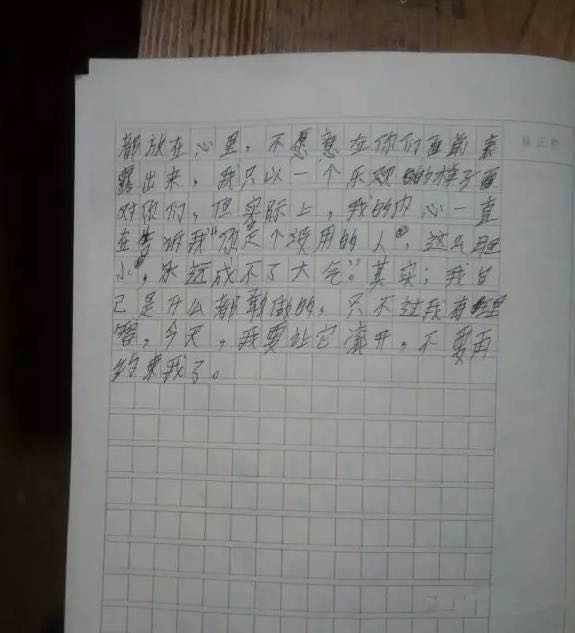 都放在心里，不愿意在你们面前表
露出来，我只以一个乐观的样子面
对你们，但实际上，我的内心一直
在告诉我“你是个没用的人”，这么胆
小，永远成不了大气。其实；我自
己是什么都敢做的，只不过我有理
智，今天，我要让它滚开，不要再
约束我了。